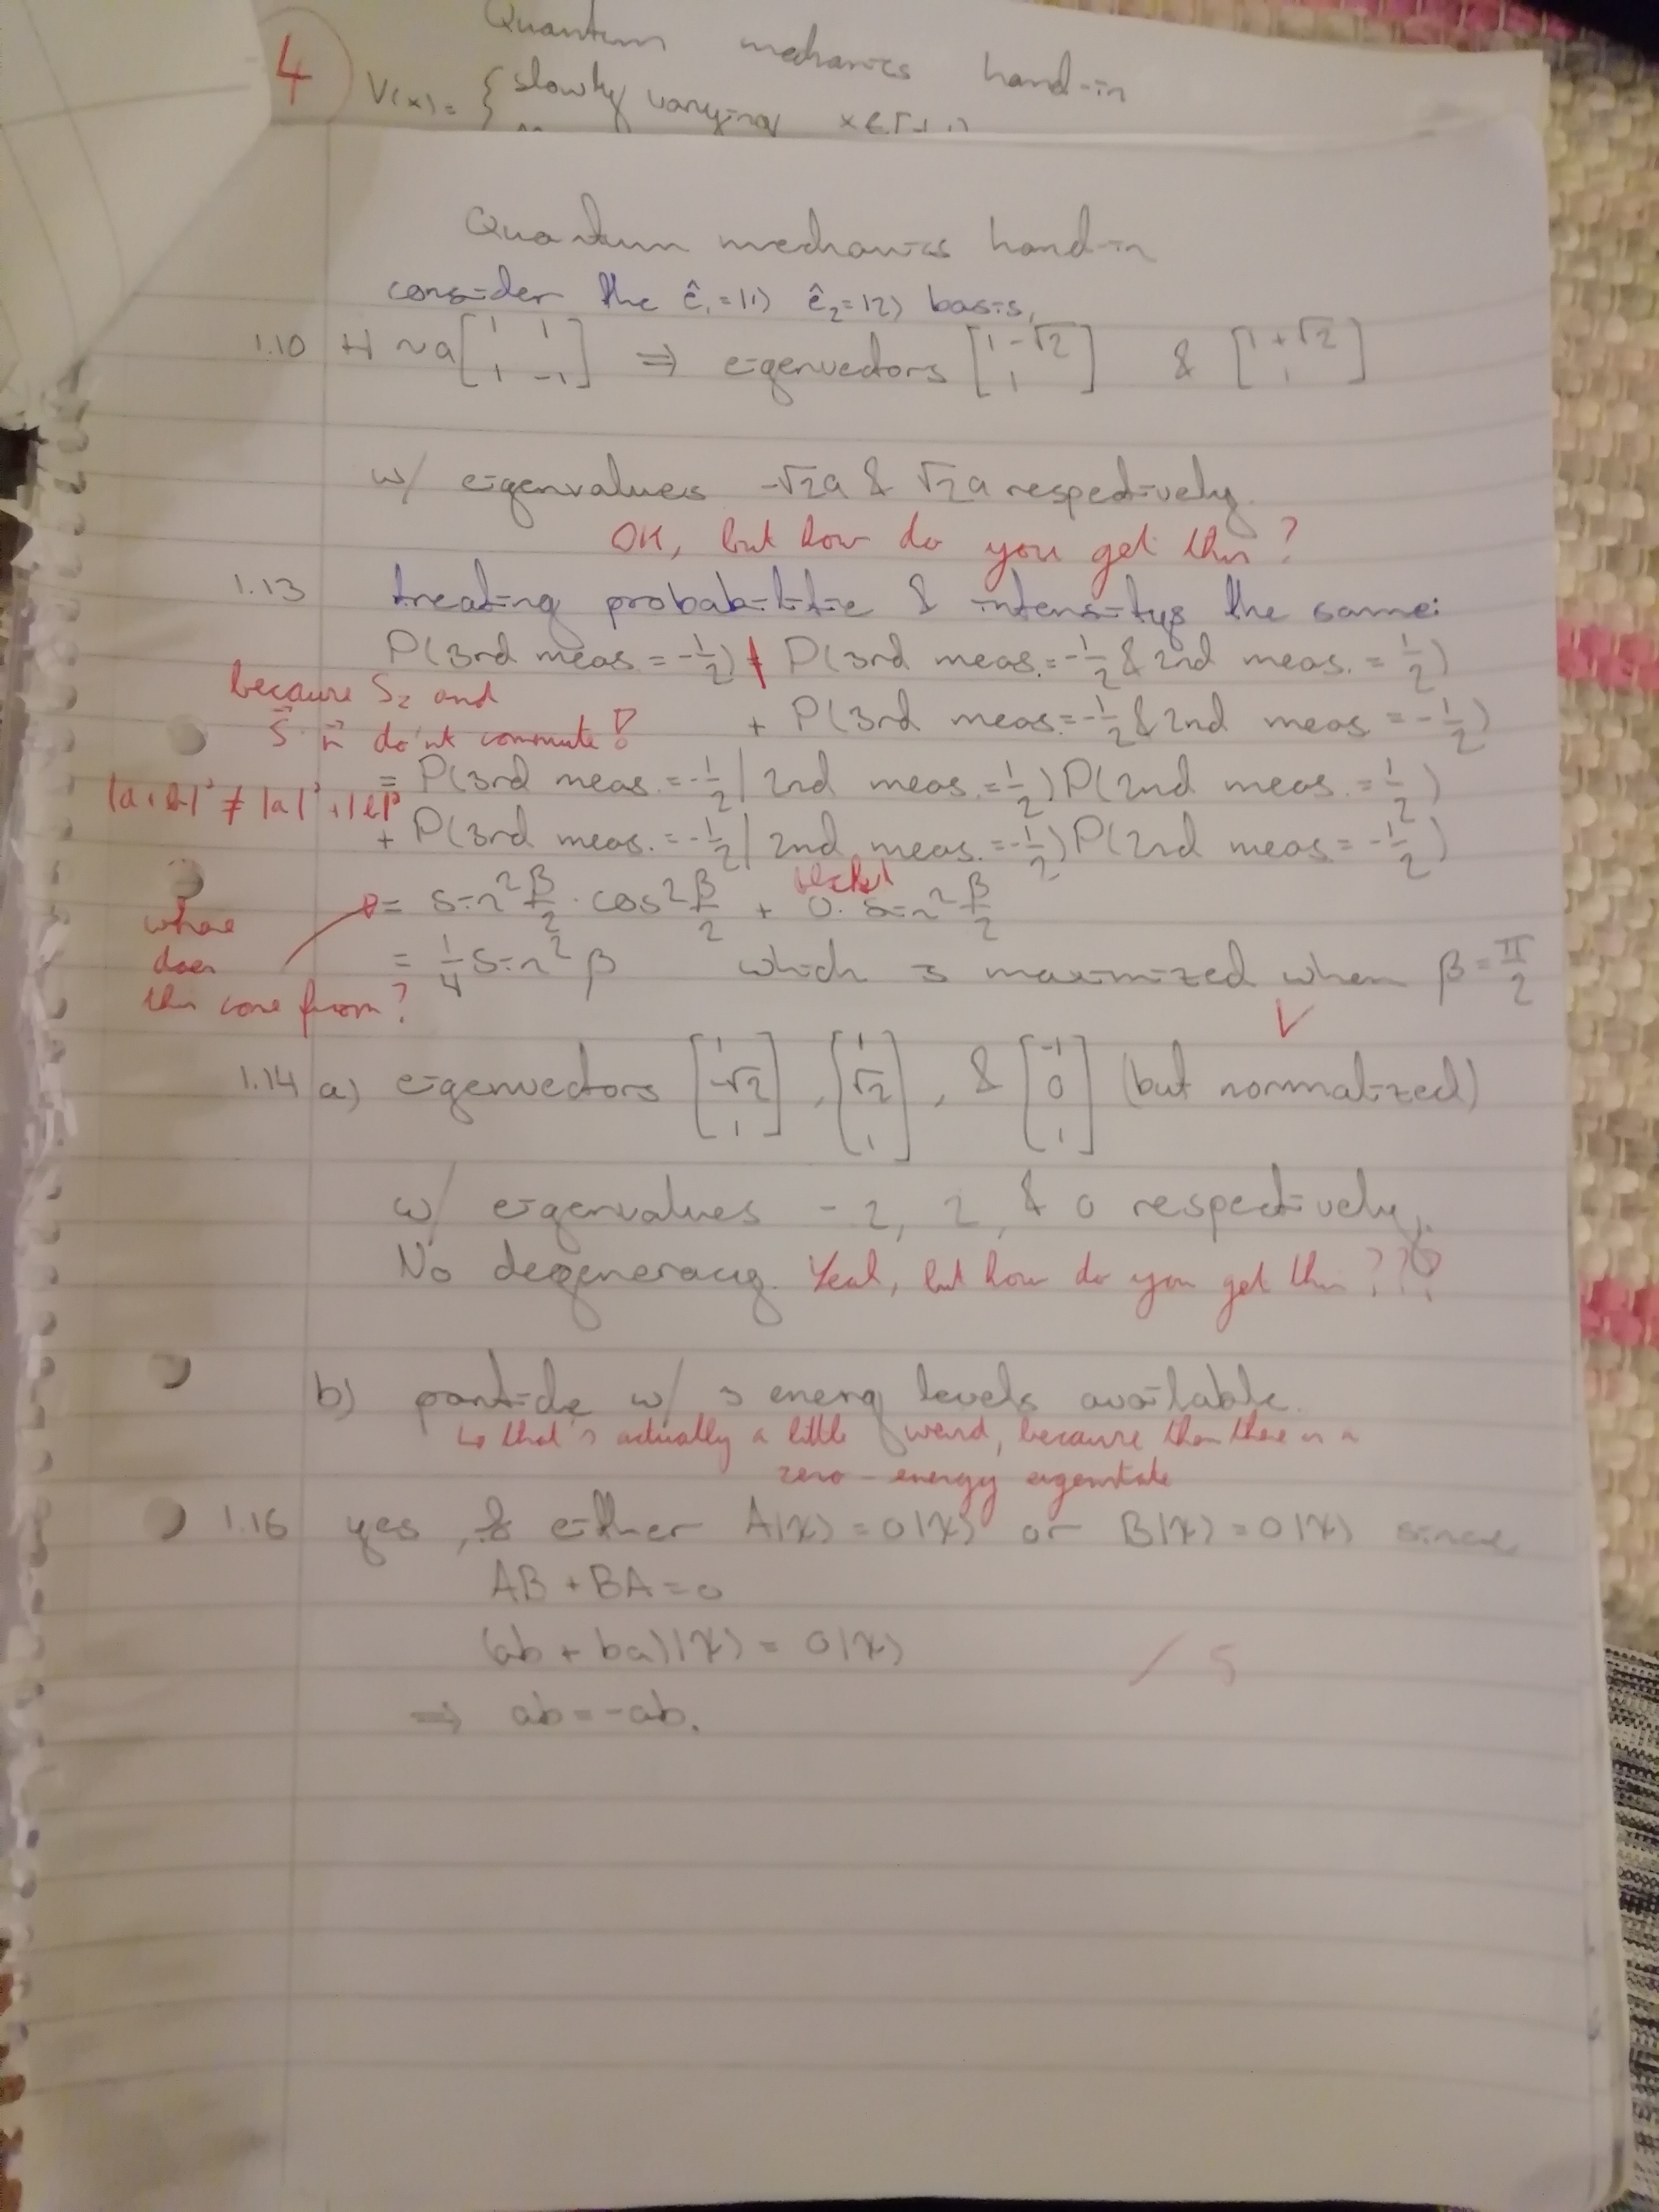 Quantum mechanics hand-in
4
V(x) = { slowly varying x∈[
Quantum mechanics hand-in
consider the ê₁=|1⟩ ê₂=|2⟩ basis,
1.10 H ~ a [1 1; 1 -1] ⇒ eigenvectors [1-√2; 1] & [1+√2; 1]
w/ eigenvalues -√2a & √2a respectively.
OK, but how do you get this?
1.13 treating probabilitie & intensitys the same:
P(3rd meas. = -1/2) ≠ P(3rd meas. = -1/2 & 2nd meas. = 1/2)
because Sz and
+ P(3rd meas. = -1/2 & 2nd meas = -1/2)
S⃗·n⃗ do'nt commute!
= P(3rd meas. = -1/2 | 2nd meas. = 1/2) P(2nd meas. = 1/2)
|a+b|² ≠ |a|² + |b|²
+ P(3rd meas. = -1/2 | 2nd meas. = -1/2) P(2nd meas = -1/2)
= sin² β/2 · cos² β/2 + 0 · sin² β/2
where
does
this come from?
= 1/4 sin² β which is maximized when β = π/2
V
1.14 a) eigenvectors [1; -√2; 1], [1; √2; 1], & [-1; 0; 1] (but normalized)
w/ eigenvalues -2, 2, & 0 respectively.
No degeneracy. Yeah, but how do you get this ???
b) particle w/ 3 energy levels available.
↳ that's actually a little weird, because then there is a
zero-energy eigenstate
1.16 yes, & either A|χ⟩ = 0|χ⟩ or B|χ⟩ = 0|χ⟩ since
AB + BA = 0
(ab + ba)|χ⟩ = 0|χ⟩
/ 5
⇒ ab = -ab.